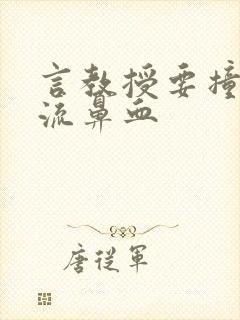 言教授要撞
流鼻血
唐從軍